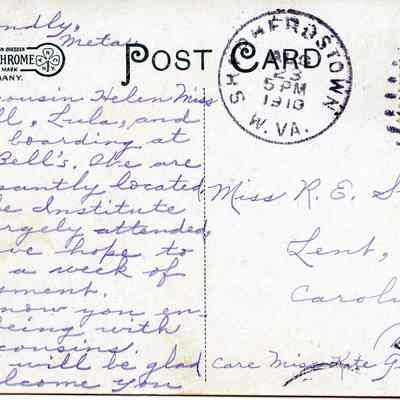 ndly,
Metas
N DRESDEN
CHROME
MARK
ANY.
POST CARD
SHEPHERDSTOWN
23
5 PM
1910
W. VA.
cousin Helen Miss
ll, Lula, and
boarding at
Bell's. We are
santly located
e Institute
rgely attended,
ve hope to
a week of
sment.
now you en-
being with
cousins.
will be glad
elcome you
Miss R. E. S
Lent,
Carol
Care Miss Kate G